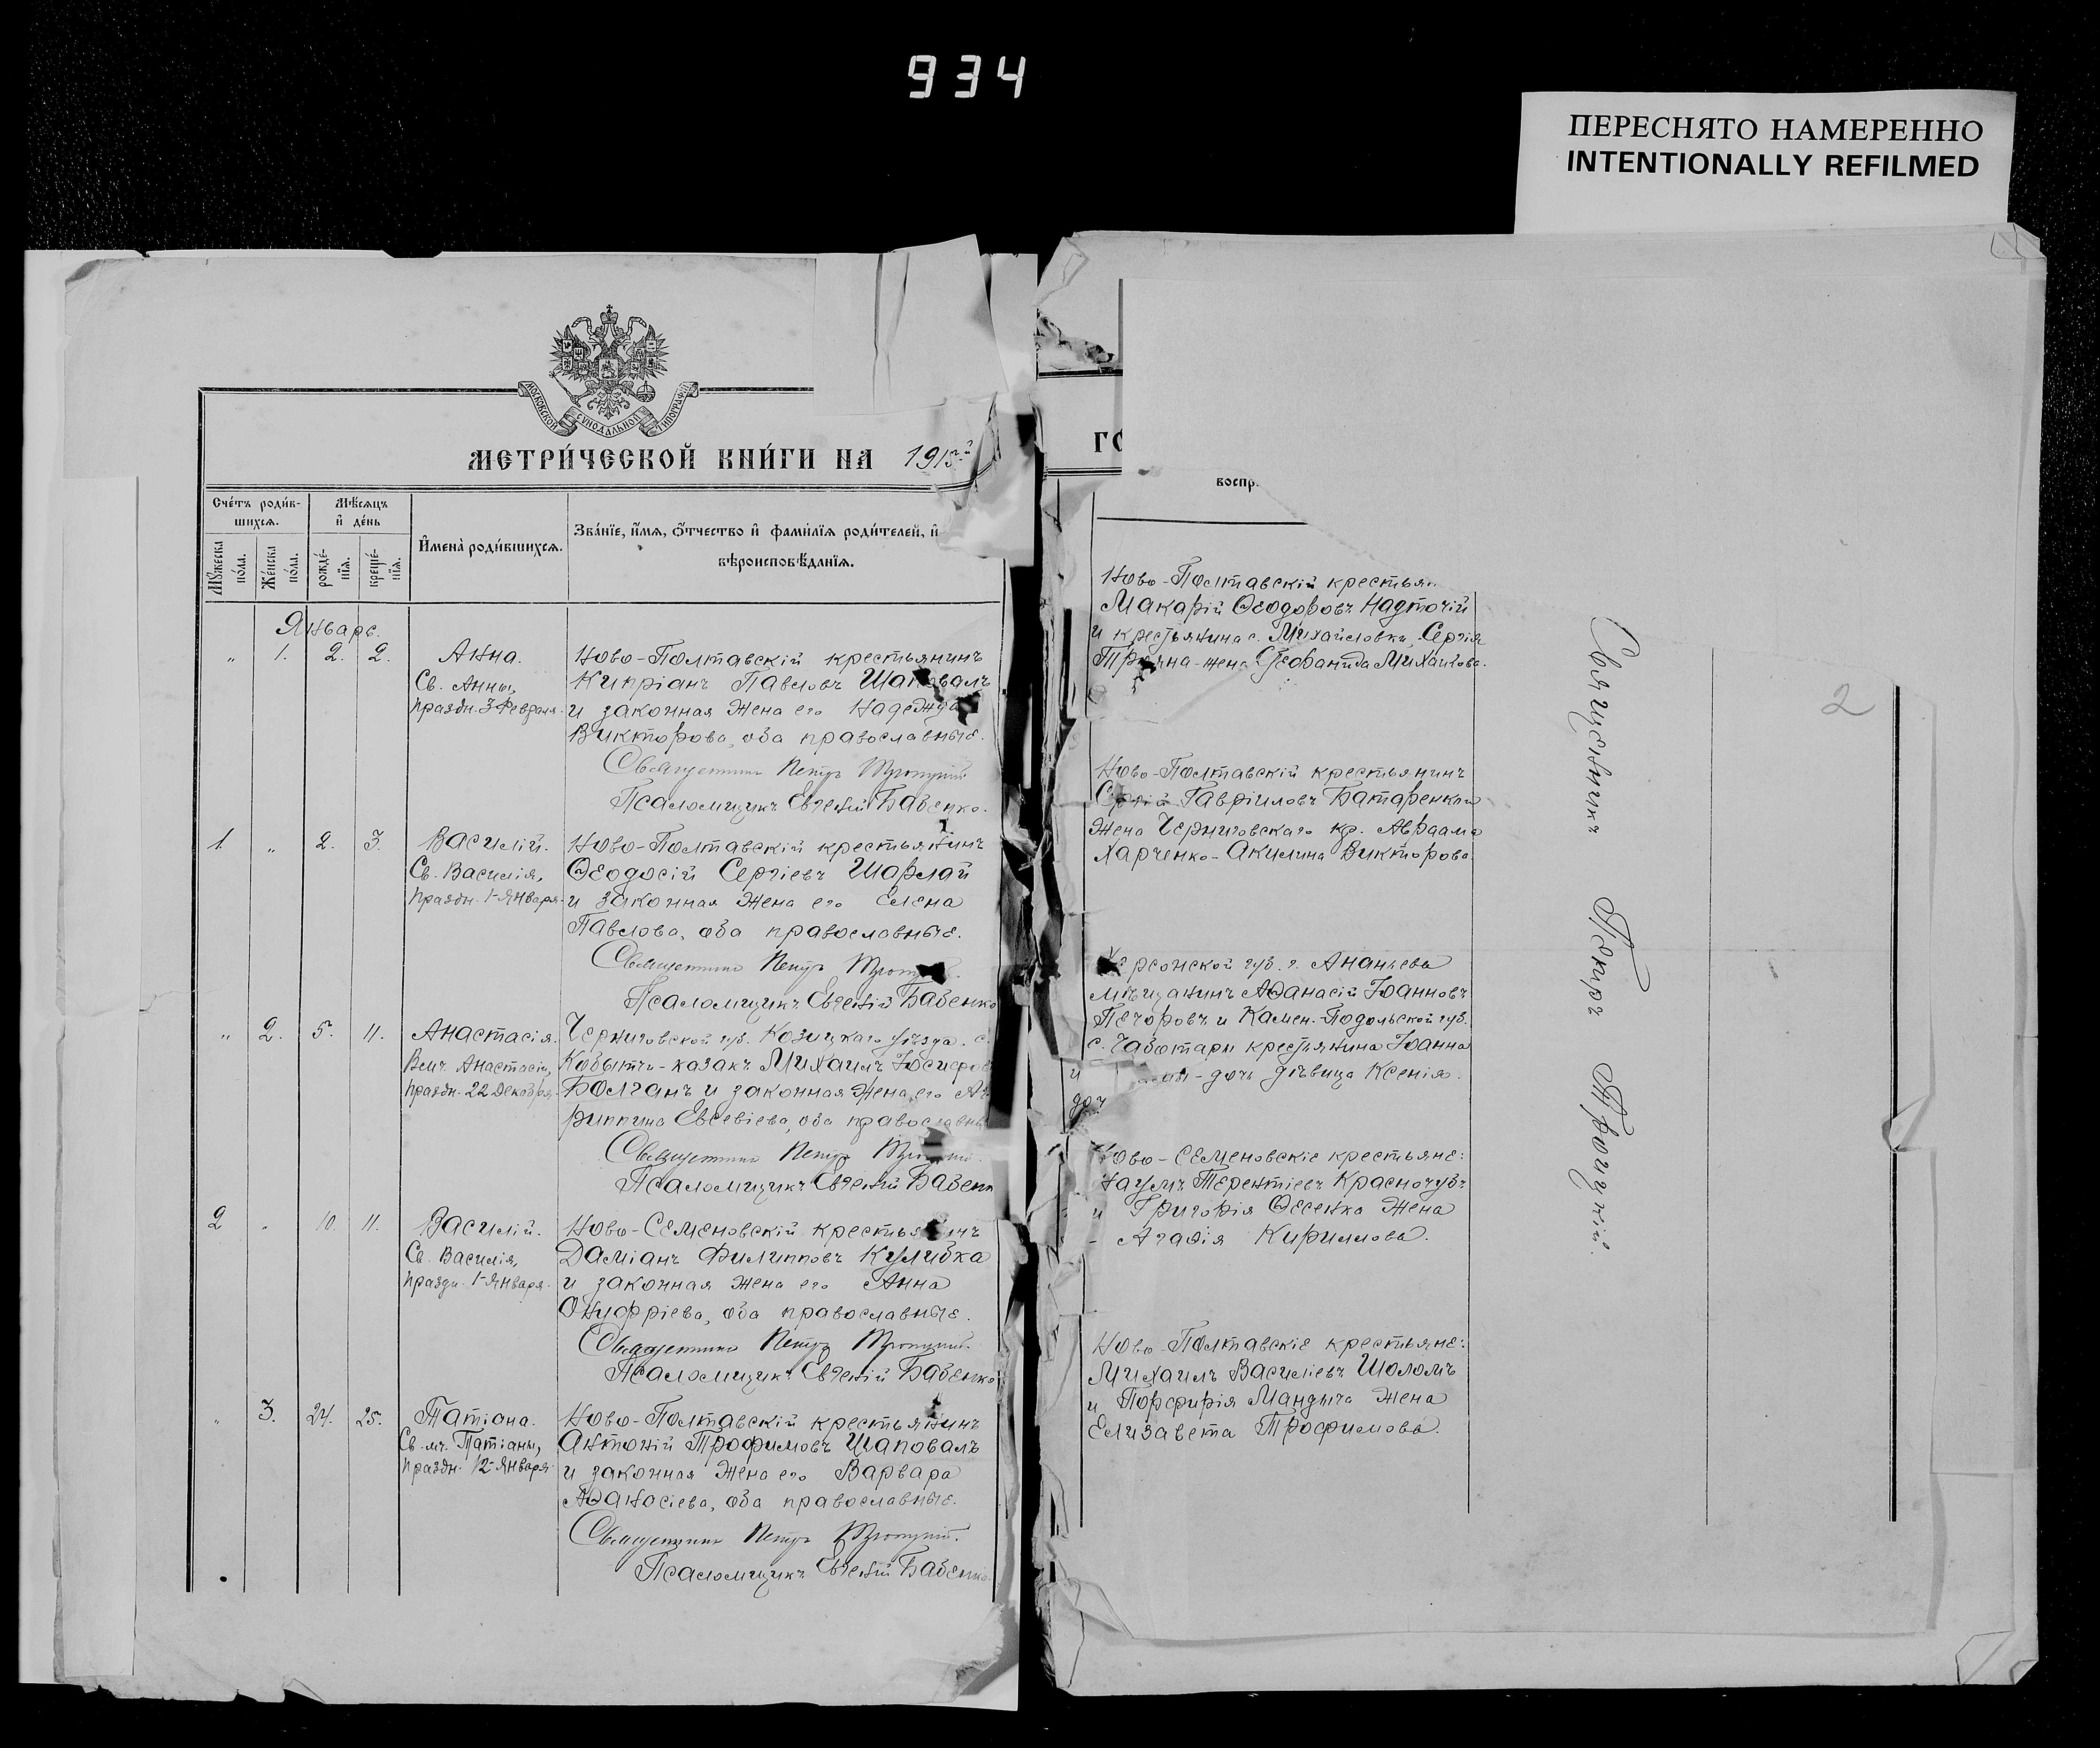 934
ПЕРЕСНЯТО НАМЕРЕННО
INTENTIONALLY REFILMED
МОСКОВСКОЙ СѴНОДАЛЬНОЙ ТИПОГРАФІИ
МЕТРИ́ЧЕСКОЙ КНИ́ГИ НА 1915й
Сче́тъ роди́в-
шихся.
Мѣ́сяцъ
и҆ де́нь
Мꙋ́жеска
по́ла.
Же́нска
по́ла.
рожде́-
нїя.
креще́-
нїя.
И҆мена̀ роди́вшихся.
Зва́нїе, и҆́мя, ѻ҆́тчество и҆ фами́лїя роди́телей, и҆
вѣроисповѣ́данїя.
Январь.
„ 1. 2. 2. Анна.
Св. Анны,
праздн. 3 Февраля.
Ново-Полтавскій крестьянинъ
Кипріанъ Павловъ Шаповалъ
и законная жена его Надежда
Викторова, оба православные.
Священникъ Петръ Троицкій.
Псаломщикъ Евгеній Бабенко.
1. „ 2. 3. Василій.
Св. Василія,
праздн. 1 Января.
Ново-Полтавскій крестьянинъ
Ѳеодосій Сергіевъ Шарлай
и законная жена его Елена
Павлова, оба православные.
Священникъ Петръ
Псаломщикъ Евгеній Бабенко
„ 2. 5. 11. Анастасія.
Вмч. Анастасіи,
праздн. 22 Декабря.
Черниговской губ. Козицкаго уѣзда. с.
Кобытчи-казакъ Михаилъ Іосифов
Болганъ и законная жена его Аг
риппина Евсевіева, оба православны
Священникъ Петръ
Псаломщикъ Евгеній Бабенк
2 „ 10. 11. Василій.
Св. Василія,
праздн. 1 Января.
Ново-Семеновскій крестьянинъ
Даміанъ Филипповъ Кулибка
и законная жена его Анна
Онуфріева, оба православные.
Священникъ Петръ Троицкій.
Псаломщикъ Евгеній Бабенко
„ 3. 24. 25. Татіана.
Св. мч. Татіаны,
праздн. 12 Января.
Ново-Полтавскій крестьянинъ
Антоній Трофимовъ Шаповалъ
и законная жена его Варвара
Аѳанасіева, оба православные.
Священникъ Петръ Троицкій.
Псаломщикъ Евгеній Бабенко
ГО
воспр.
Ново-Полтавскій крестьян
Макарій Ѳеодоровъ Надточій
и крестьянина с. Михайловки Сергія
жена Стефанида Михайлова.
Ново-Полтавскій крестьянинъ
Сергій Гавріиловъ Батаренко и
жена Черниговскаго кр. Авраама
Харченко-Акилина Викторова.
Херсонской губ. г. Ананьева
мѣщанинъ Аѳанасій Іоанновъ
Печоровъ и Камен.-Подольской губ.
с. Чаботары крестьянина Іоанна
и дочь дѣвица Ксенія.
доч
Ново-Семеновскіе крестьяне:
Наумъ Терентіевъ Красногубъ
и Григорія Ѳесенко жена
Агаѳія Кириллова.
Ново-Полтавскіе крестьяне:
Михаилъ Василіевъ Шоломъ
и Порфирія Мандыча жена
Елизавета Трофимова.
Священникъ Петръ Троицкій.
2